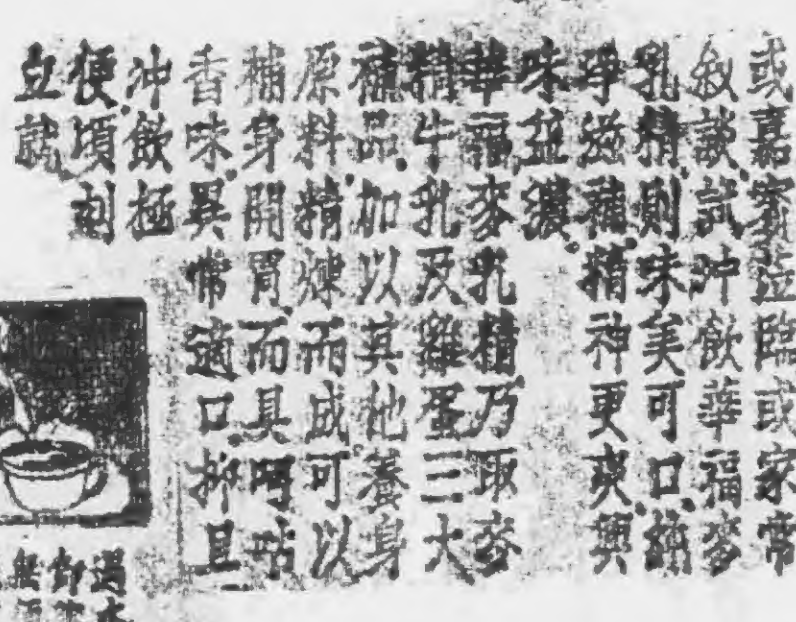 或嘉賓蒞臨或家常
敘談試沖飲華福麥
乳精則味美可口
滋補精神更爽興
味益濃
華福麥乳精乃取麥
精牛乳及雞蛋三大
補品加以其他養身
原料精煉而成可以
補身開胃而具
香味異常適口抑且
沖飲極
便頃刻
立就